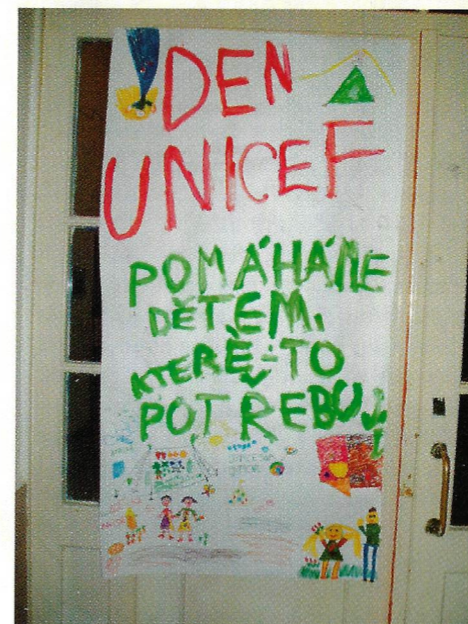 DEN
UNICEF
POMÁHÁME
DĚTEM,
KTERÉ-TO
POTŘEBUJÍ